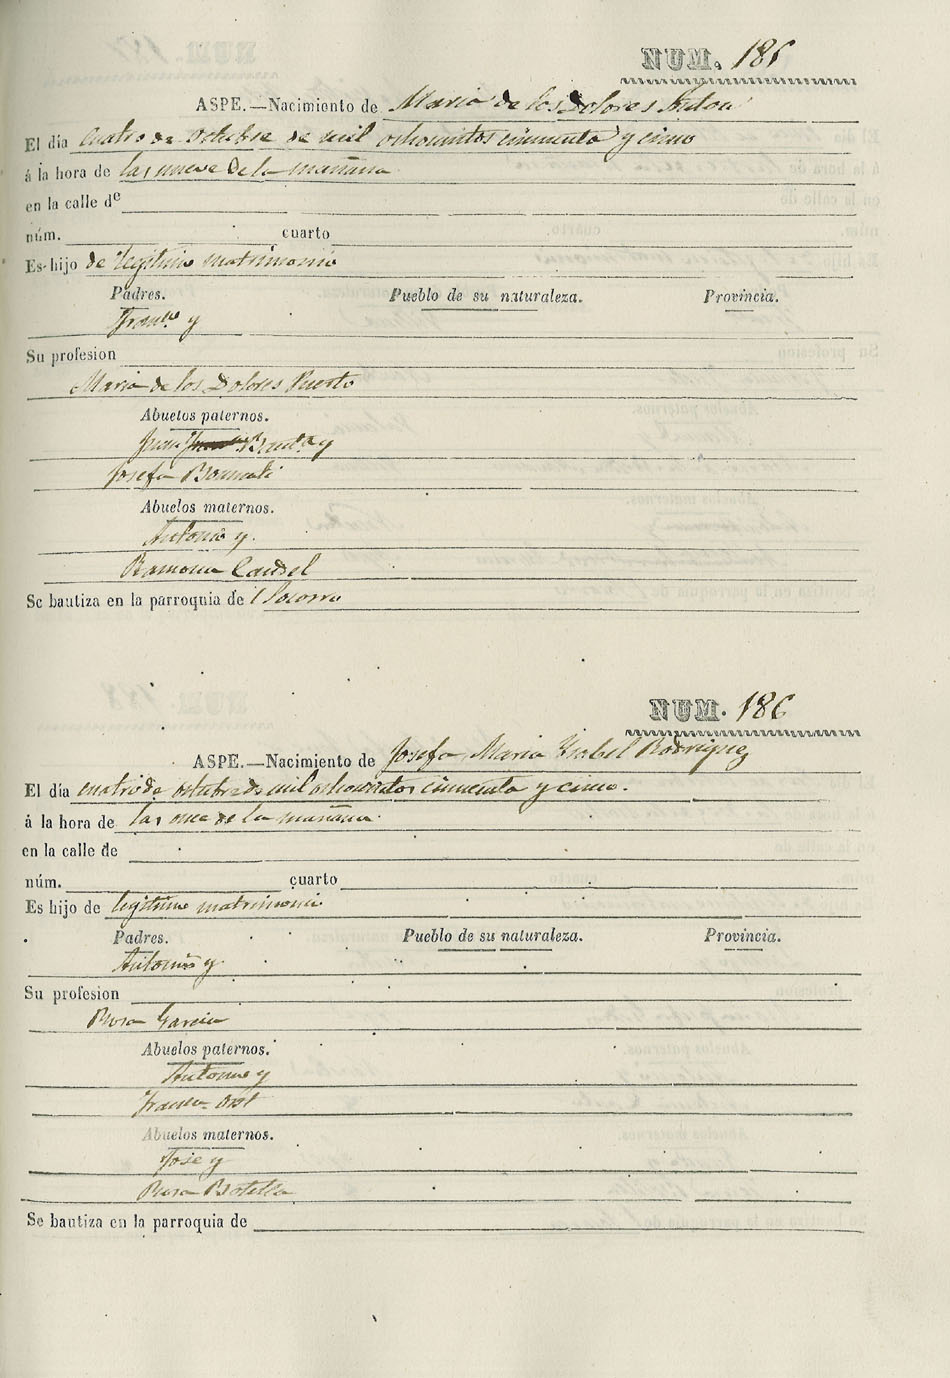 NUM. 186
ASPE.—Nacimiento de Maria de los Dolores
El día cuatro de octubre de mil ochocientos cincuenta y cinco
á la hora de las nueve de la mañana
en la calle de
núm. cuarto
Es hijo de legitimo matrimonio
Padres. Pueblo de su naturaleza. Provincia.
Franco y
Su profesion
Maria de los Dolores Puerto
Abuelos paternos.
Juan y
Josefa
Abuelos maternos.
Antonio y
Ramona Caudel
Se bautiza en la parroquia de l Socorro
NUM. 186
ASPE.—Nacimiento de Josefa Maria Ysabel Rodriguez
El día cuatro de octubre de mil ochocientos cincuenta y cinco.
á la hora de las once de la mañana.
en la calle de
núm. cuarto
Es hijo de legitimo matrimonio
Padres. Pueblo de su naturaleza. Provincia.
Antonio y
Su profesion
Rosa Garcia
Abuelos paternos.
Antonio y
Franca
Abuelos maternos.
Jose y
Rosa Botella
Se bautiza en la parroquia de